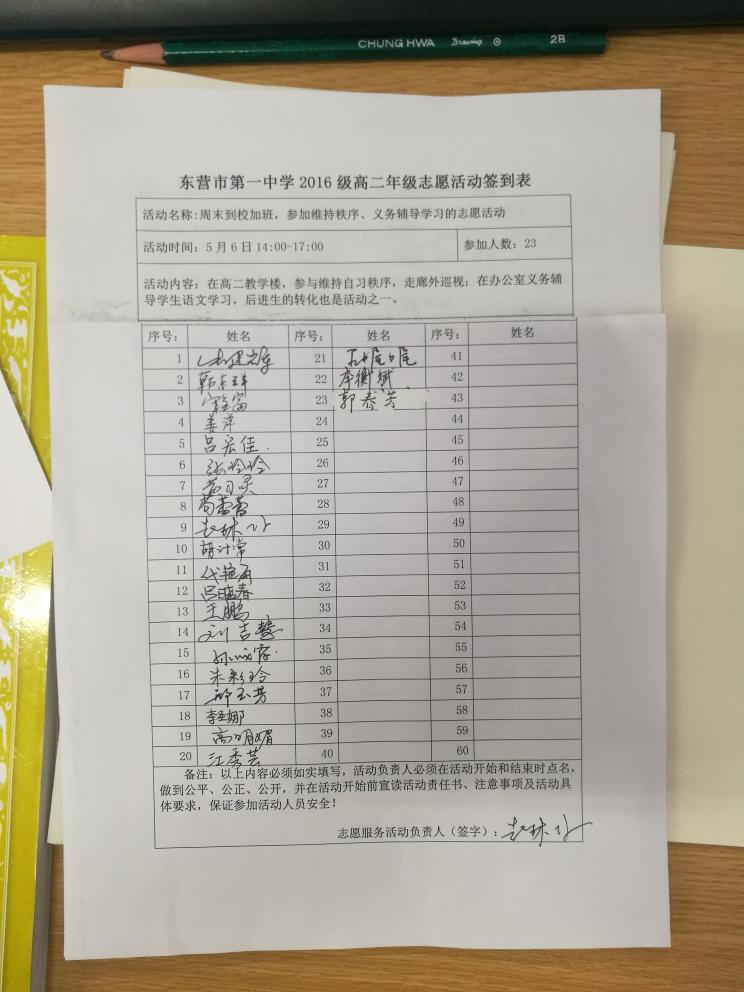 CHUNG HWA Drawing 2B
东营市第一中学 2016 级高二年级志愿活动签到表
活动名称:周末到校加班，参加维持秩序、义务辅导学习的志愿活动
活动时间：5 月 6 日 14:00-17:00 参加人数：23
活动内容：在高二教学楼，参与维持自习秩序，走廊外巡视；在办公室义务辅
导学生语文学习，后进生的转化也是活动之一。
序号： 姓名 序号： 姓名 序号： 姓名
1 21 41
2 22 李衡斌 42
3 23 郭泰芳 43
4 姜萍 24 44
5 吕宏佳 25 45
6 张玲玲 26 46
7 27 47
8 荀蕾蕾 28 48
9 29 49
10 30 50
11 31 51
12 32 52
13 王鹏 33 53
14 刘吉慧 34 54
15 35 55
16 朱彩玲 36 56
17 邴玉芳 37 57
18 38 58
19 高明媚 39 59
20 江秀芸 40 60
备注：以上内容必须如实填写，活动负责人必须在活动开始和结束时点名，
做到公平、公正、公开，并在活动开始前宣读活动责任书、注意事项及活动具
体要求，保证参加活动人员安全！
志愿服务活动负责人（签字）：